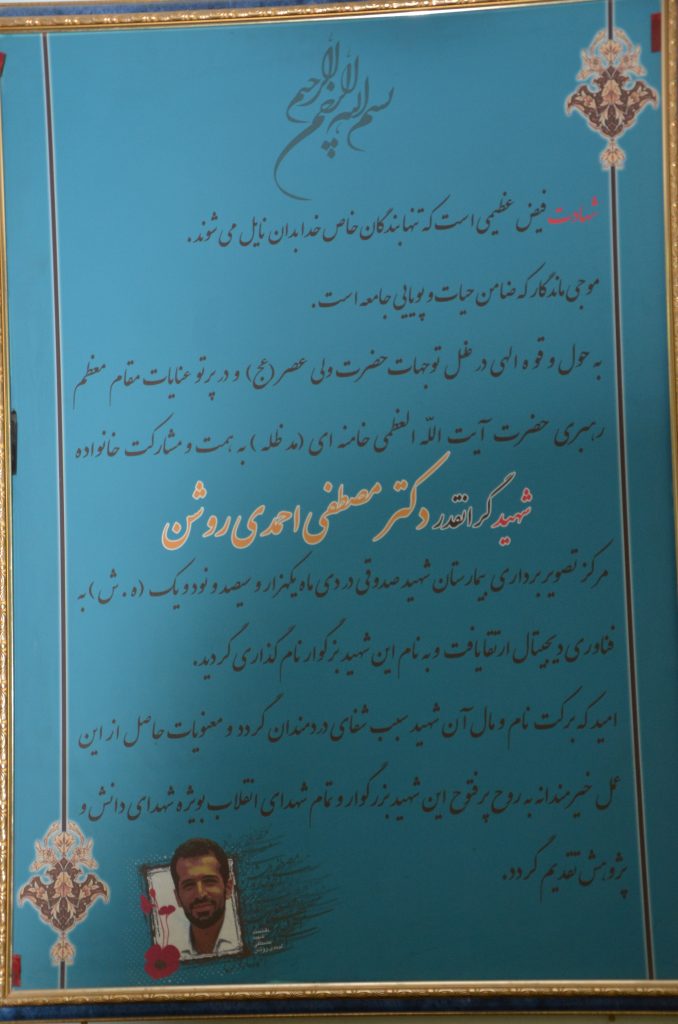 بسم الله الرحمن الرحیم
شهادت فیض عظیمی است که تنها بندگان خاص خدا بدان نایل می شوند.
موجی ماندگار که ضامن حیات و پویایی جامعه است.
به حول و قوه الهی در ظل توجهات حضرت ولی عصر (عج) و در پرتو عنایات مقام معظم
رهبری حضرت آیت اللّه العظمی خامنه ای (مد ظله) به همت و مشارکت خانواده
شهید گرانقدر دکتر مصطفی احمدی روشن
مرکز تصویر برداری بیمارستان شهید صدوقی در دی ماه یکهزار و سیصد و نود و یک (ه.ش) به
فناوری دیجیتال ارتقا یافت و به نام این شهید بزگوار نام گذاری گردید.
امید که برکت نام و مال آن شهید سبب شفای دردمندان گردد و معنویات حاصل از این
عمل خیرمندانه به روح پرفتوح این شهید بزرگوار و تمام شهدای انقلاب بویژه شهدای دانش و
پژوهش تقدیم گردد.
دانشمند
شهید
مصطفی
احمدی روشن